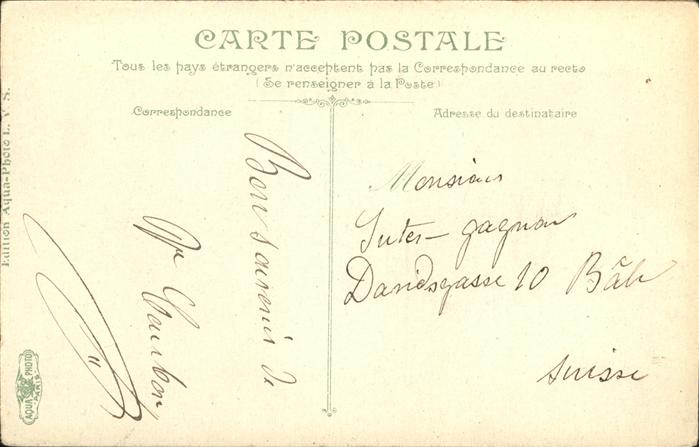 CARTE POSTALE
Tous les pays étrangers n'acceptent pas la Correspondance au recto
(Se renseigner à la Poste)
Correspondance
Adresse du destinataire
Bon souvenir de
Monsieur
Suter-gagnon
Davidsgasse 10 Bâle
Suisse
Edition Aqua-Photo L. V. S.
AQUA PHOTO
PARIS